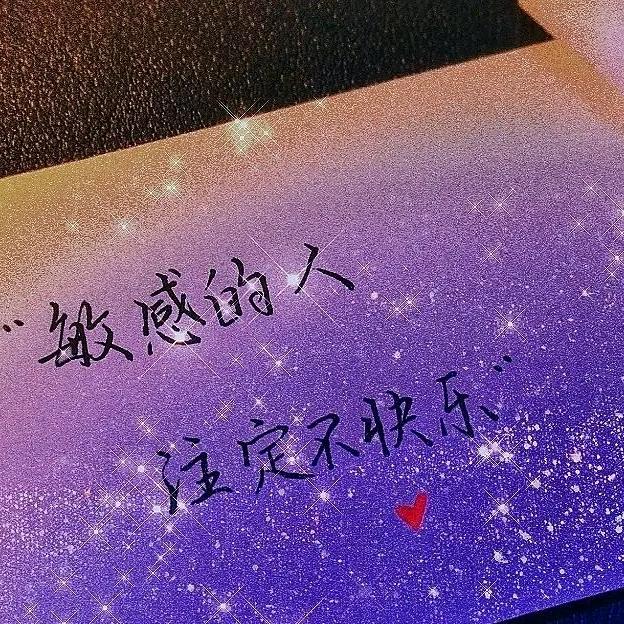 "敏感的人
注定不快乐"